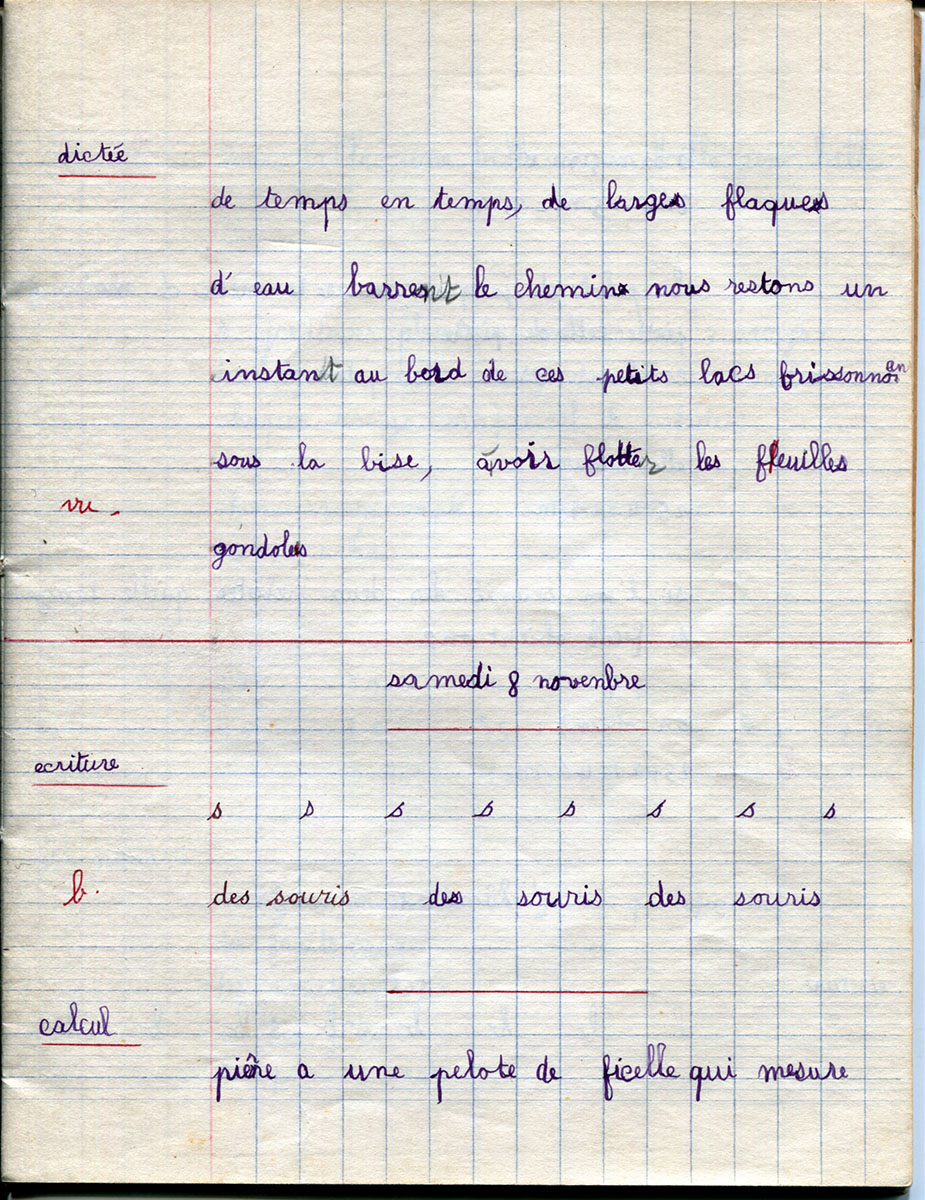 dictée
de temps en temps, de larges flaques
d'eau barrent le chemin nous restons un
instant au bord de ces petits lacs frissonnan
sous la bise, à voir flotter les feuilles
vu.
gondoles
samedi 8 novenbre
ecriture
s s s s s s s s
b. des souris des souris des souris
calcul
pière a une pelote de ficelle qui mesure